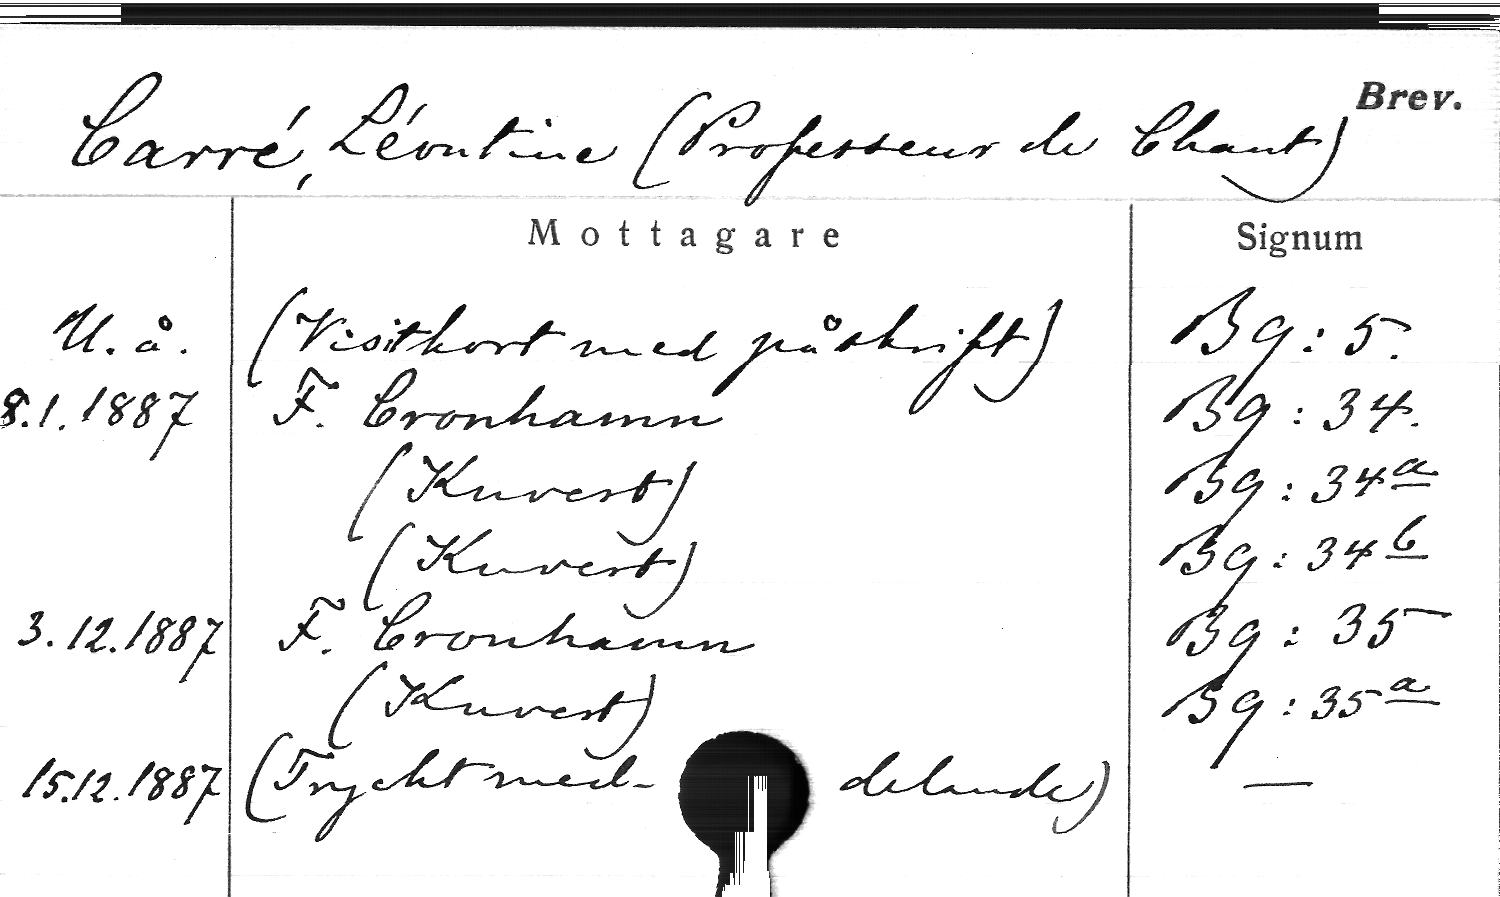 Brev.
Carré, Léontine (Professeur de Chant)
Mottagare Signum
U. å. (Visitkort med påskrift) Bg: 5.
8.1.1887 F. Cronhamn Bg: 34.
(Kuvert) Bg: 34a
(Kuvert) Bg: 34b
3.12.1887 F. Cronhamn Bg: 35
(Kuvert) Bg: 35a
15.12.1887 (Tryckt med- delande) —